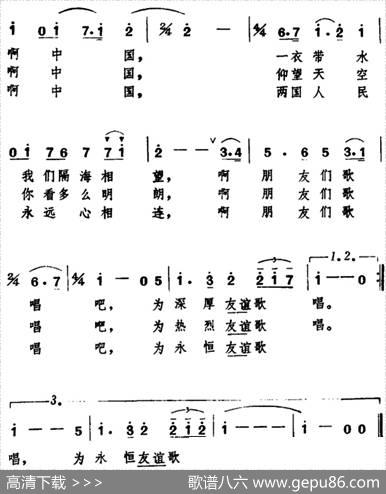 i 0 i 7·i 2 2/4 2 4/4 2 - 2/4 6·7 4/4 i·2 i
啊 中 国, 一 衣 带 水
啊 中 国, 仰 望 天 空
啊 中 国, 两 国 人 民
0 i 7 6 7 7 i 2 - - 3·4 5·6 5 3·1
我 们 隔 海 相 望, 啊 朋 友 们 歌
你 看 多 么 明 朗, 啊 朋 友 们 歌
永 远 心 相 连, 啊 朋 友 们 歌
2/4 6·7 4/4 i - 0 5 i·3 2 2 i 7 i - - 0
1. 2.
唱 吧, 为 深 厚 友 谊 歌 唱。
唱 吧, 为 热 烈 友 谊 歌 唱。
唱 吧, 为 永 恒 友 谊 歌
3.
i - - 5 i·3 2 2 i 2 i - - - i - - 0
唱, 为 永 恒 友 谊 歌
高清下载 >>> 歌谱八六 www.gepu86.com